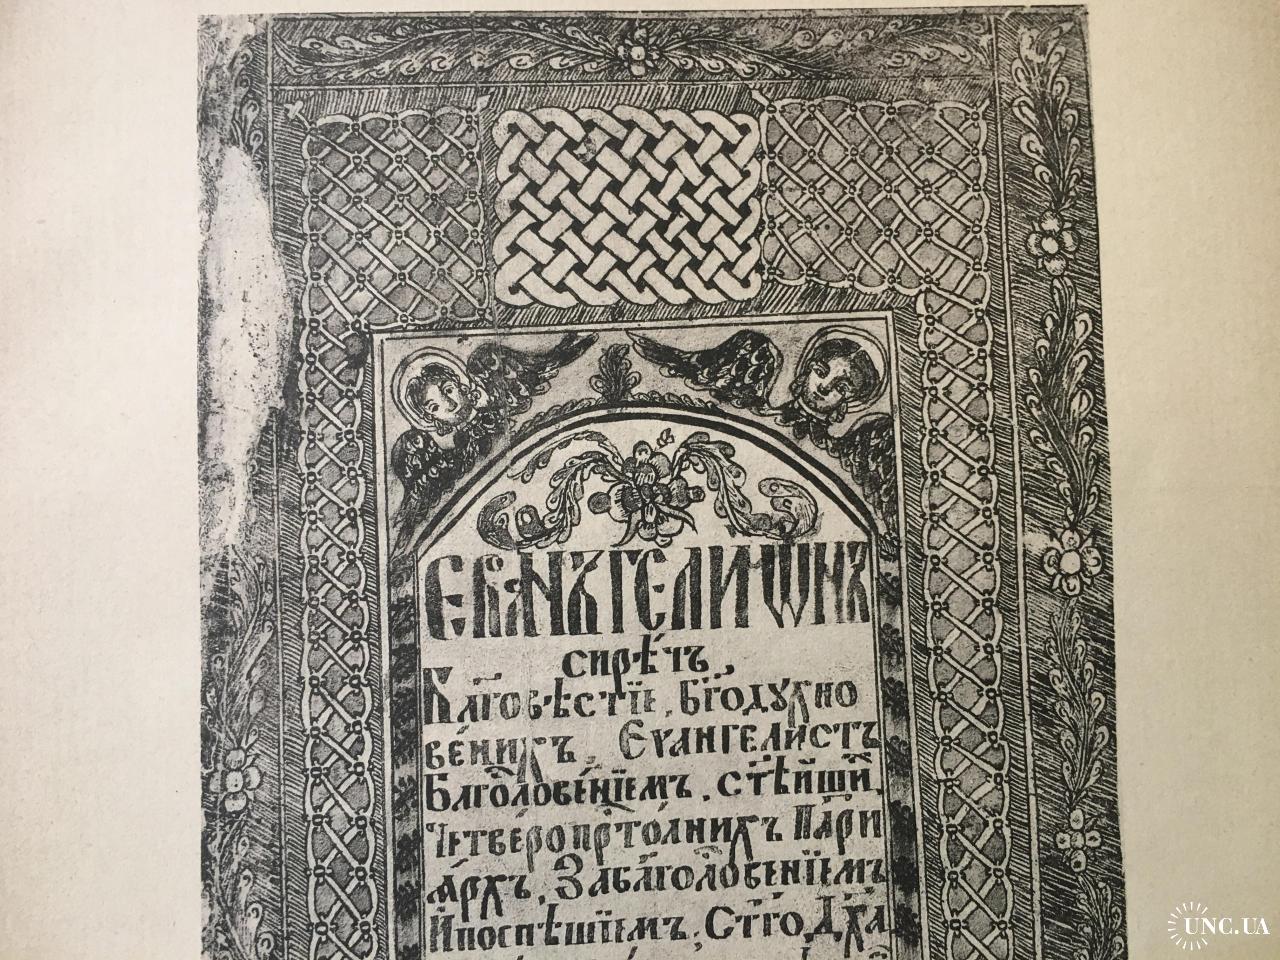 ЕѴАНГЕЛИѠНЪ
сирѣчь,
Бл҃говѣстїе, Бг҃одꙋхно
венныхъ, Еѵангелистъ
Благолове́нїемъ, ст҃ѣйши
Четверопрⷭ҇толныхъ Патрі
а́рхъ, Заблаголове́нїемъ
Ипоспѣшїемъ, Ст҃го Дх҃а
UNC.UA